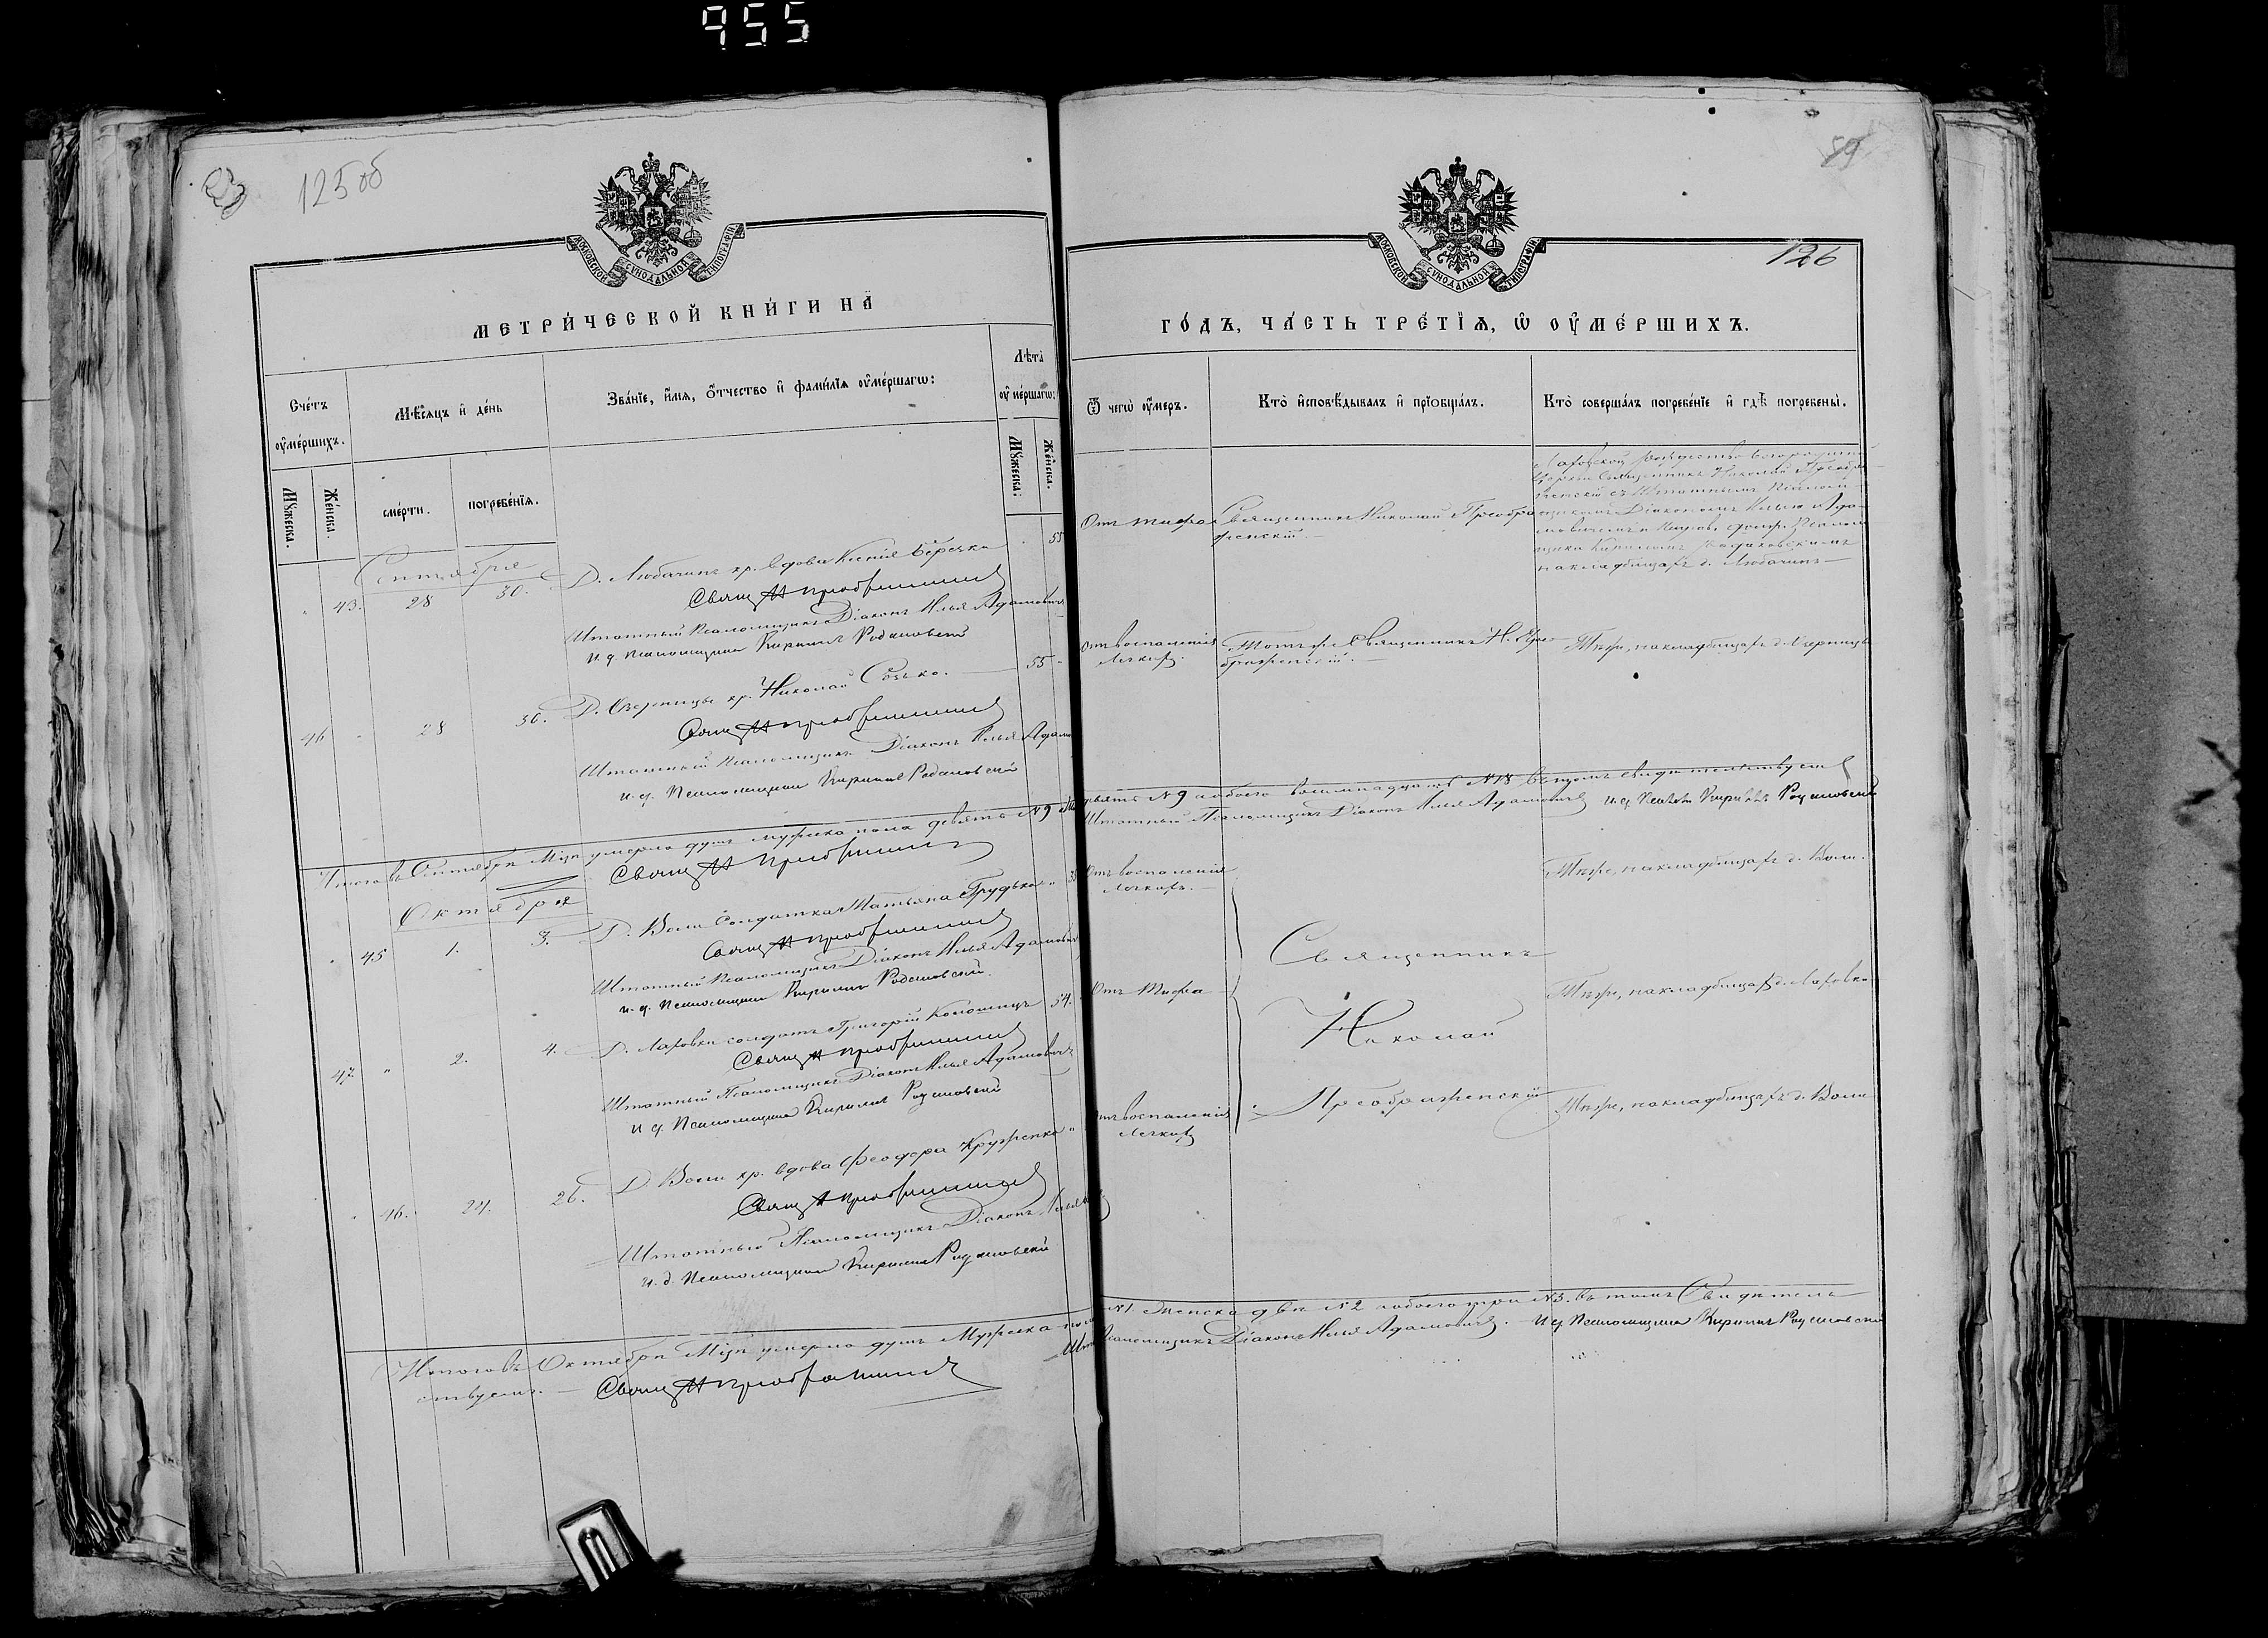 955
125 об
89
126
МОСКОВСКОЙ СѴНОДАЛЬНОЙ ТИПОГРАФІИ
МЕТРИ́ЧЕСКОЙ КНИ́ГИ НА̀
Счéтъ оу҆мéршихъ.
Мѣ́сѧцъ и҆ дéнь
Звáнїе, и҆́мѧ, ѻ҆́тчество и҆ фамѝлїѧ оу҆мéршагѡ:
Лѣ́та оу҆мéршагѡ:
Мꙋ́жеска.
Жéнска.
смéрти.
погребéнїѧ.
Мꙋ́жеска.
Жéнска.
Сентября
43.
28
30.
Д. Любачинъ кр. вдова Ксенія Беречка
55
Свящ Н Преображенскій
Штатный Псаломщикъ Діаконъ Илья Адамовичъ
и. д. Псаломщика Кириллъ Родаковскій
46
28
30.
Д. Озерницы кр. Николай Сосько.
55
Свящ Н Преображенскій
Штатный Псаломщикъ Діаконъ Илья
и. д. Псаломщика Кириллъ Родаковскій
Итого въ Сентябрѣ Мцѣ умерло душъ мужеска пола девять №9
Свящ Н Преображенскій
Октября
45
1.
3.
Д. Воли Солдатка Татьяна Грудько
Свящ Н Преображенскій
Штатный Псаломщикъ Діаконъ Илья Адамовичъ
и. д. Псаломщика Кириллъ Родаковскій
47
2.
4.
Д. Лаховки солдатъ Григорій Коломиецъ
54.
Свящ Н Преображенскій
Штатный Псаломщикъ Діаконъ Илья Адамовичъ
и д. Псаломщика Кириллъ Родаковскій
46.
24.
26.
Д. Воли кр. вдова Феодора
Свящ Н Преображенскій
Штатный Псаломщикъ Діаконъ Илья
и. д. Псаломщика Кириллъ Родаковскій
Итого въ Октябрѣ Мцѣ умерло душъ Мужеска пола
ствуемъ. — Свящ Н Преображенскій
МОСКОВСКОЙ СѴНОДАЛЬНОЙ ТИПОГРАФІИ
ГО́ДЪ, ЧА́СТЬ ТРЕ́ТЇѦ, Ѡ҆ ОУ҆МЕ́РШИХЪ.
Ѿ чегѡ̀ оу҆́меръ.
Кто̀ и҆сповѣ́дывалъ и҆ прїѡбщáлъ.
Кто̀ совершáлъ погребéнїе и҆ гдѣ̀ погребены̀.
Отъ тифа
Священникъ Николай Преображенскій. —
Церкви Священникъ Николай Преображенскій съ Штатнымъ Псаломщикомъ Діакономъ Ильею Адамовичемъ
на кладбищѣ д. Любачинъ —
Отъ воспаленія
легкихъ.
Тотъ же Священникъ Н. Преображенскій. —
Тѣже, на кладбищѣ д. Озерницы
№9 а обоего восемнадцать №18 въ томъ свидѣтельствуемъ
Штатный Псаломщикъ Діаконъ Илья Адамовичъ и. д. Псалом Кириллъ Родаковскій
Отъ воспаленія
легкихъ. —
Тѣже, на кладбищѣ д. Воли.
Отъ Тифа
Священникъ
Николай
Преображенскій
Тѣже, на кладбищѣ д. Лаховки
Отъ воспаленія
легкихъ
Тѣже, на кладбищѣ д. Воли
№1. Женска двѣ №2 а обоего три №3. въ томъ Свидѣтель-
Псаломщикъ Діаконъ Илья Адамовичъ. — и д Псаломщика Кириллъ Родаковскій